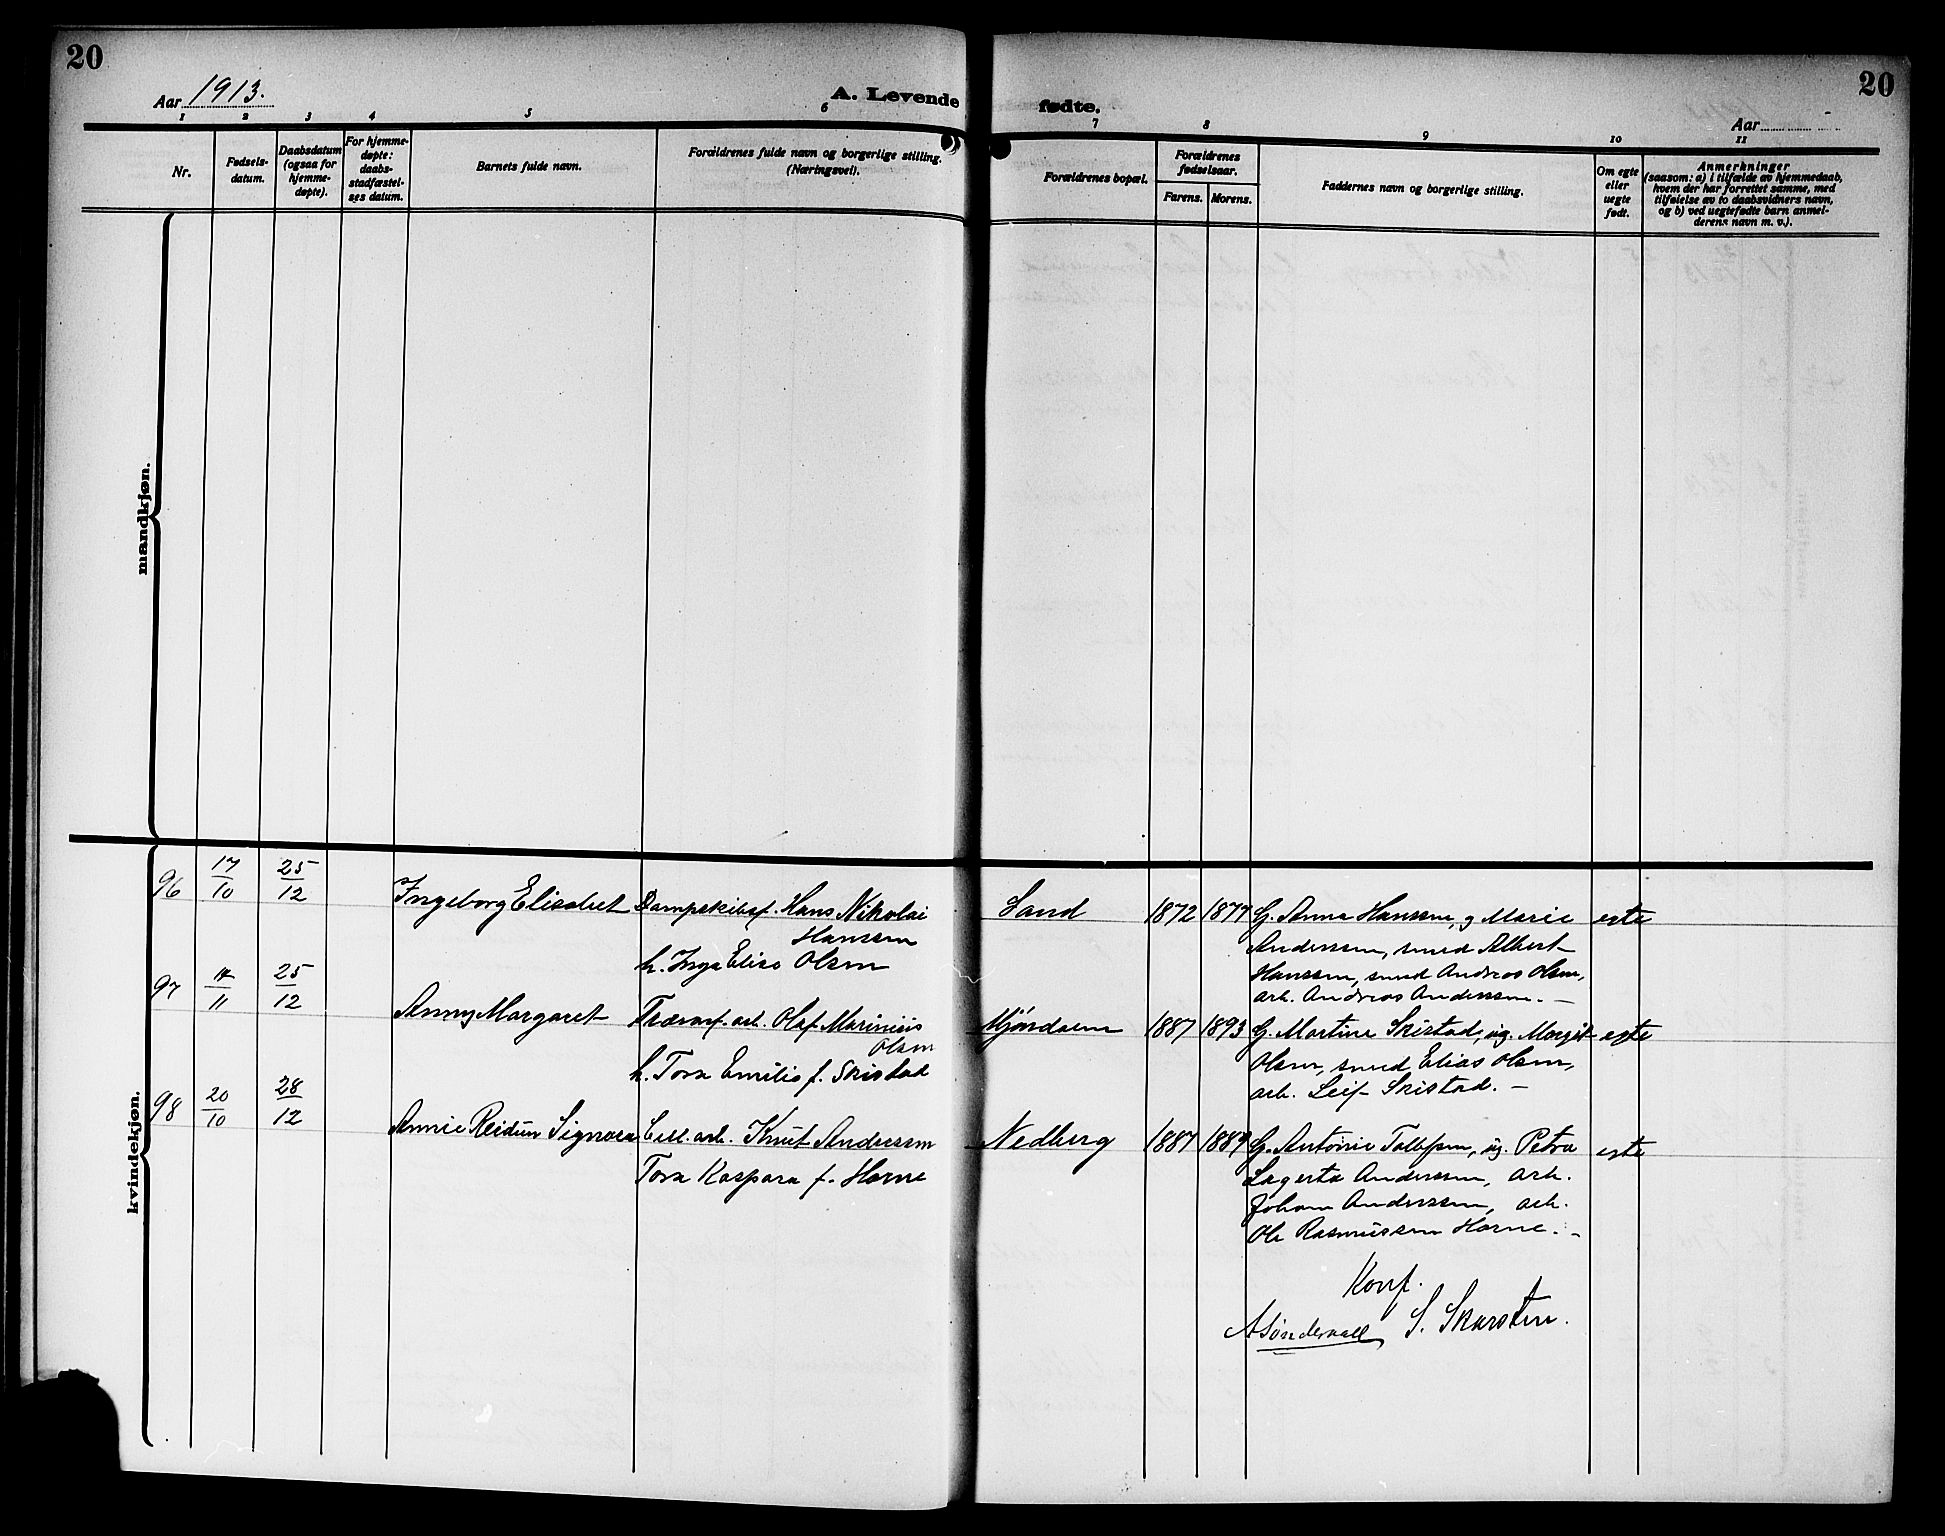 20
20
Aar 1913.
A. Levende fødte.
Aar
1 2 3 4 5 6 7 8 9 10 11
Nr.
Fødsels-
datum.
Daabsdatum
(ogsaa for
hjemme-
døpte).
For hjemme-
døpte:
daabs-
stadfæstel-
ses datum.
Barnets fulde navn.
Forældrenes fulde navn og borgerlige stilling.
(Næringsvei).
Forældrenes bopæl.
Forældrenes
fødselsaar.
Farens. Morens.
Faddernes navn og borgerlige stilling.
Om egte
eller
uegte
født.
Anmerkninger
(saasom: a) i tilfælde av hjemmedaab,
hvem der har forrettet samme, med
tilføielse av to daabsvidners navn,
og b) ved uegtefødte barn anmel-
derens navn m. v.).
mandkjøn.
kvindekjøn.
96 17/10 25/12 Ingeborg Elisabet Dampskibsf. Hans Nikolai
Hanssen
h. Inga Elise Olsen
Sand 1872 1877 G. Anna Hanssen, g Marie egte
Anderssen, smed Albert
Hanssen, smed Andreas Olsen,
arb. Andreas Anderssen. —
97 25/12 Anny Margaret Træmf. arb. Olaf Marinius
Olsen
h. Tora Emilie f. Skistad
Mjøndalen 1887 1893 G. Martine Skistad, ug. Margit egte
Olsen, smed Elias Olsen,
arb. Leif Skistad. —
98 20/10 28/12 Annie Reidun Signora Cell. arb. Knut Anderssen
Tora Kaspara f. Horne
Nedberg 1887 1889 G. Antonie Tollefsen, ug. Petra egte
Lagerta Anderssen, arb.
Johan Anderssen, arb.
Ole Rasmussen Horne. –
Konf.
A Søndervall S. Skarsten.